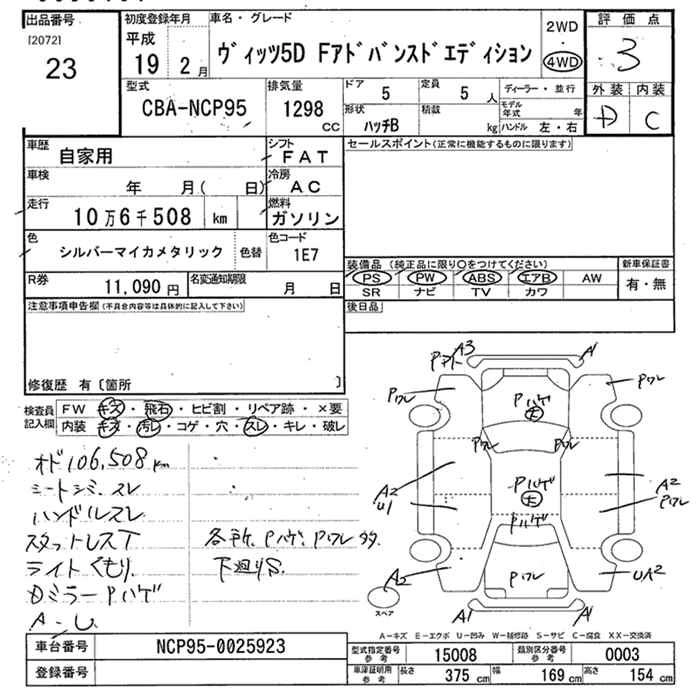 出品番号 初度登録年月 車名・グレード 2WD 評価点
[2072] 平成 ・
23 19 2月 ヴィッツ5D Fアドバンスドエディション 4WD 3
型式 排気量 ドア 定員 ディーラー・並行 外装 内装
CBA-NCP95 1298 cc 5 5人 モデル年式 年 D C
形状 積載
ハッチB kg ハンドル 左・右
車歴 自家用 シフト FAT セールスポイント(正常に機能するものに限ります)
車検 年 月( 日) 冷房 AC
走行 10万6千508 km 燃料 ガソリン
色 シルバーマイカメタリック 色替 色コード 1E7
装備品(純正品に限り○をつけてください) 新車保証書
PS PW ABS エアB AW 有・無
SR ナビ TV カワ
R券 11,090円 名変通知期限 月 日 後日品
注意事項申告欄(不具合内容等は具体的に記入して下さい)
修復歴 有〔箇所 〕
検査員記入欄 FW キズ・飛石・ヒビ割・リペア跡・×要
内装 キズ・汚レ・コゲ・穴・スレ・キレ・破レ
オド106,508km
シートシミ、スレ
ハンドルスレ
スタットレスT 各所、Pハゲ、Pワレ
ライトくもり 下廻りS
Dミラー Pハゲ
A-U
A3 A1
Pワレ Pワレ
Pハゲ 大
Pワレ Pワレ
Pハゲ 大
A2 U1 A2 Pワレ
Pハゲ
A2 Pワレ UA2
A1 A1
スペア
A-キズ E-エクボ U-凹み W-補修跡 S-サビ C-腐食 XX-交換済
車台番号 NCP95-0025923 型式指定番号 参考 15008 類別区分番号 参考 0003
登録番号 車庫証明用 参考 長さ 375cm 幅 169cm 高さ 154cm